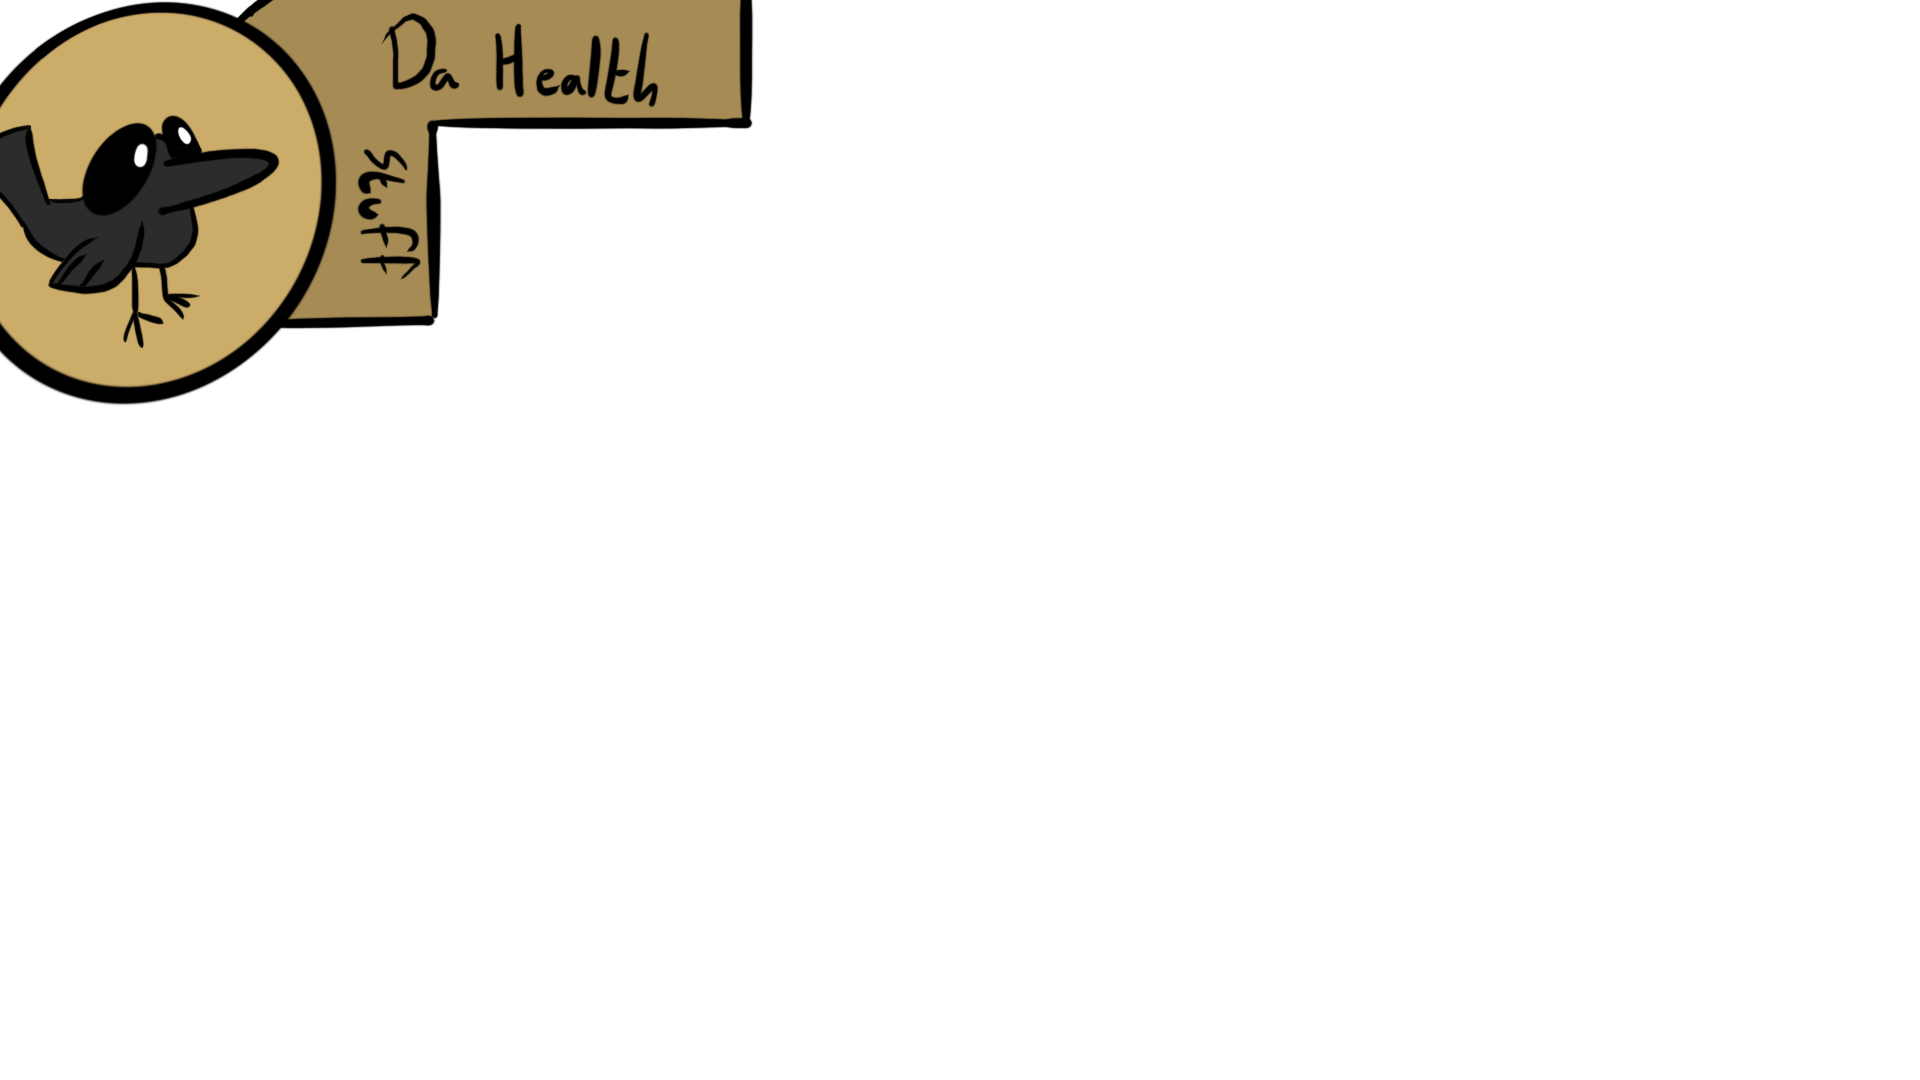 Da Health
stuff